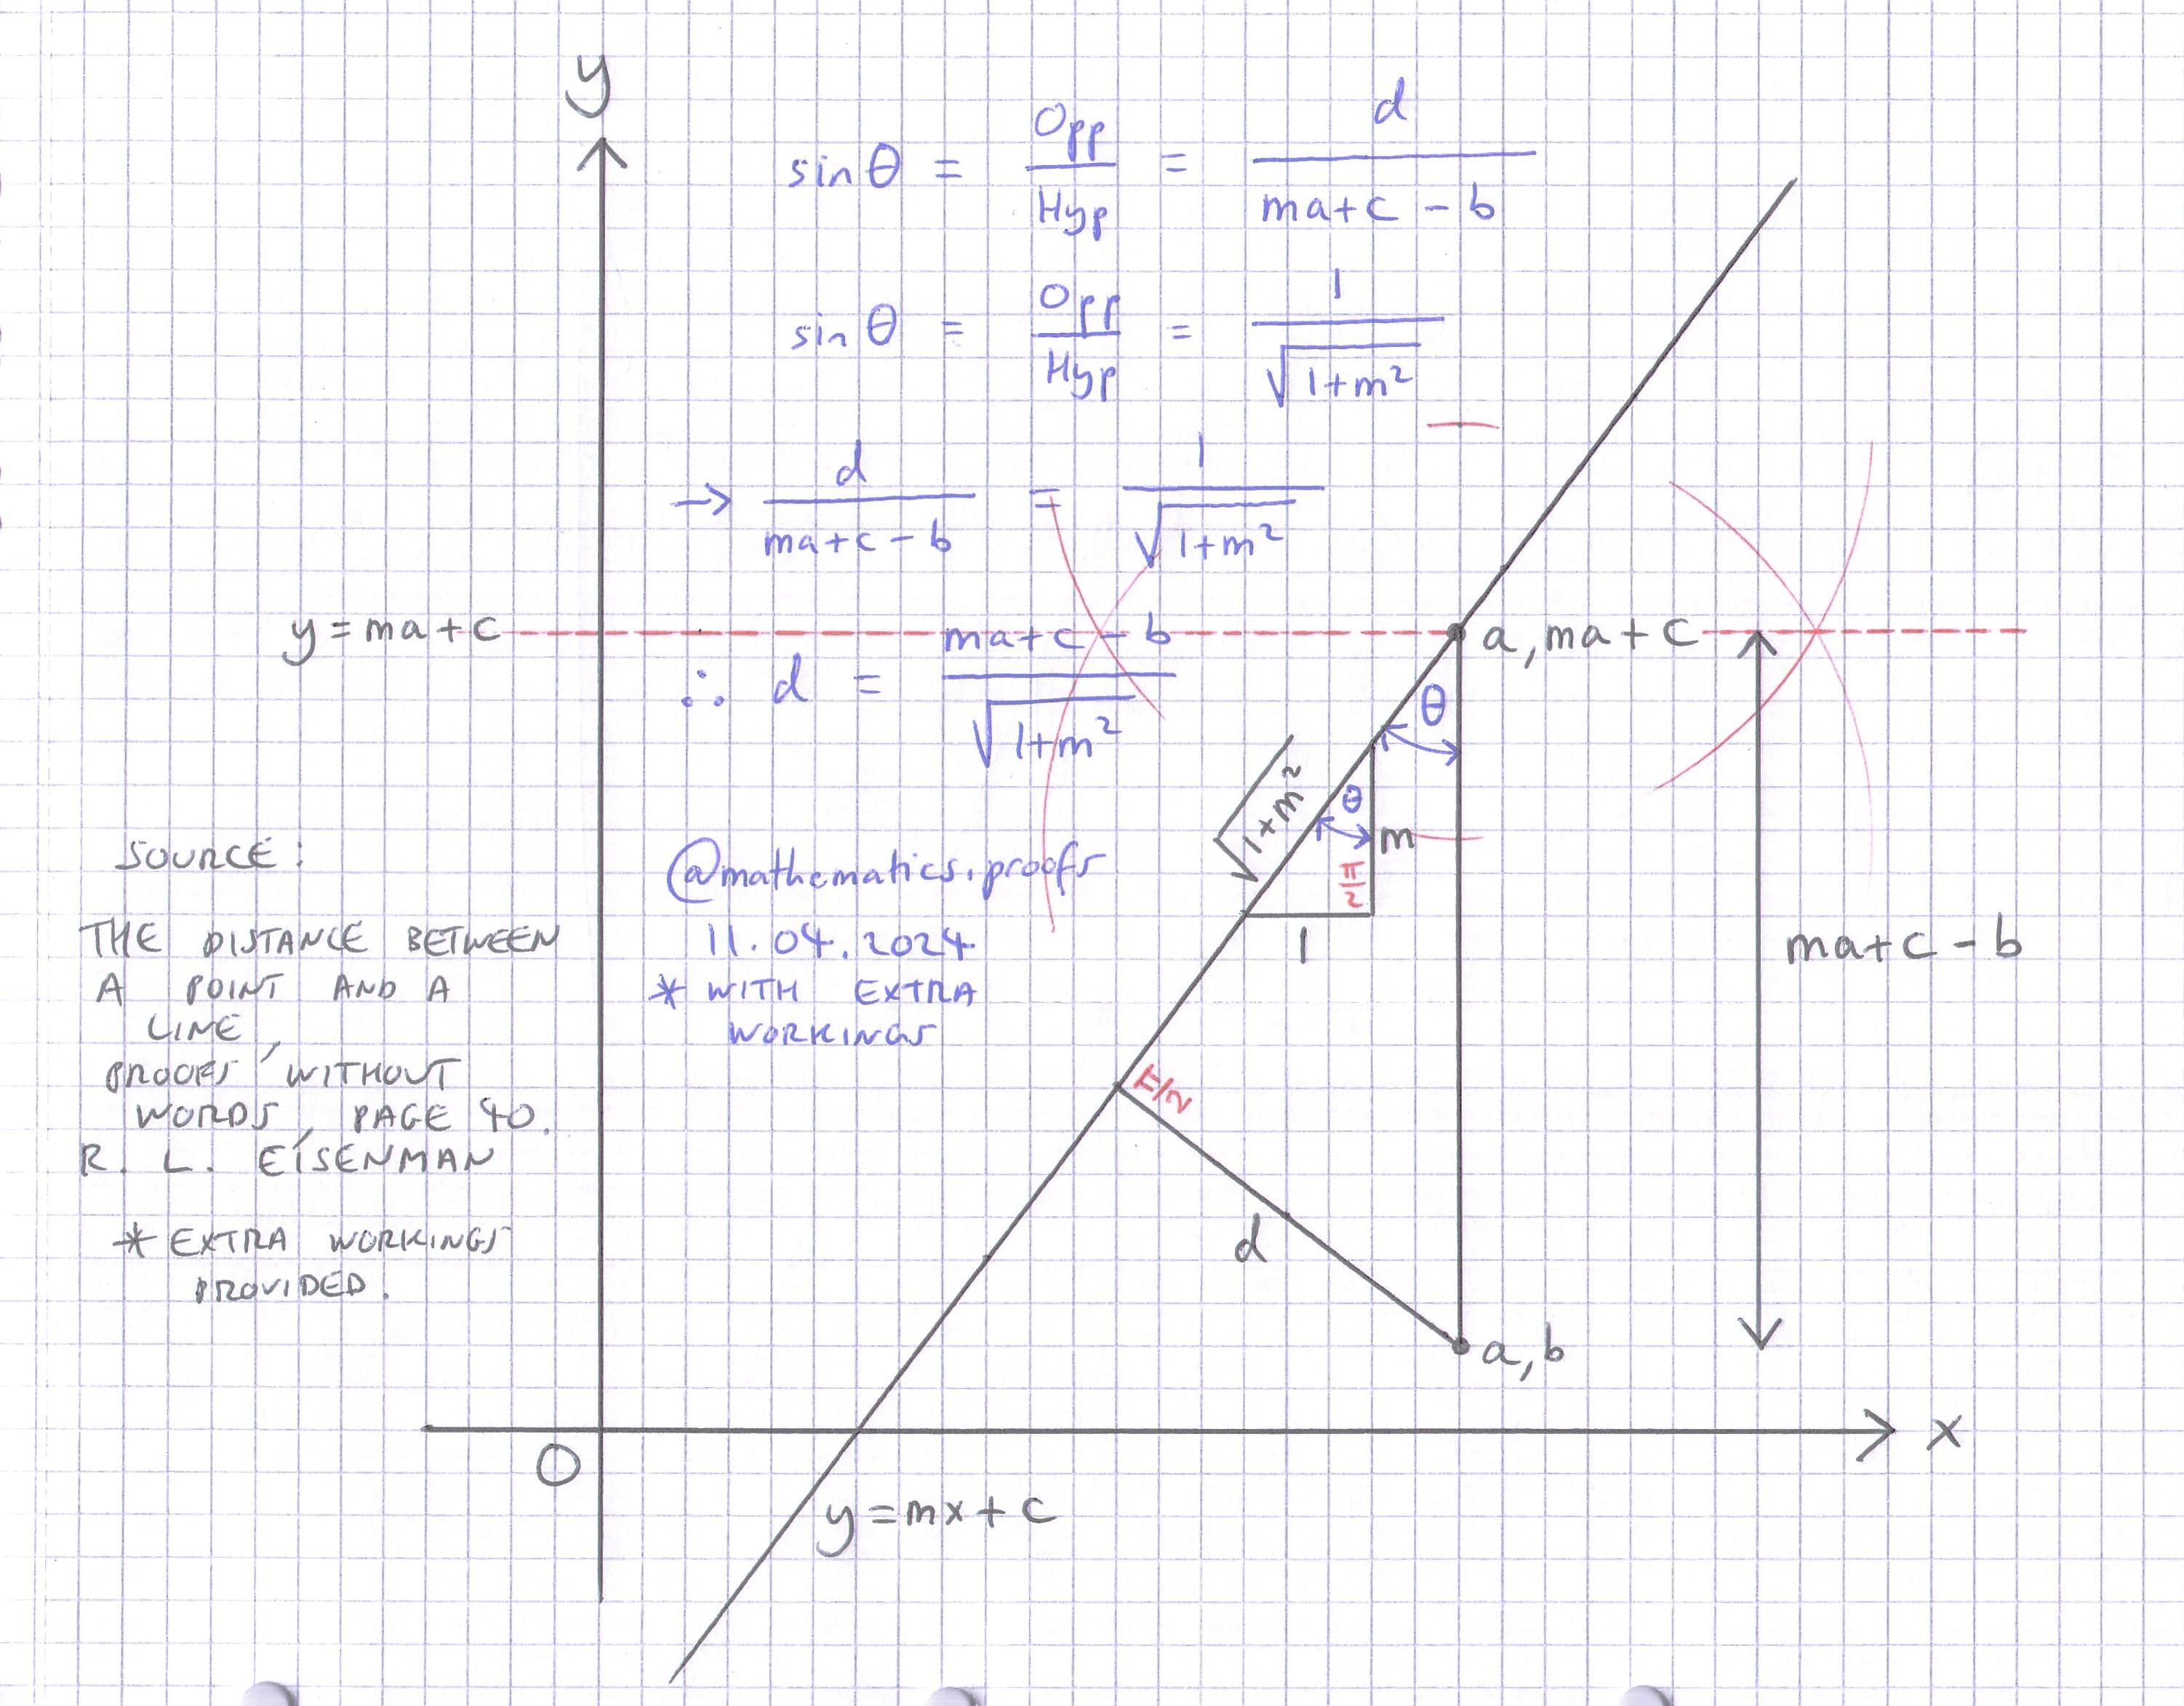 y
sin θ = Opp/Hyp = d/(ma+c-b)
sin θ = Opp/Hyp = 1/√(1+m²)
→ d/(ma+c-b) = 1/√(1+m²)
y=ma+c
∴ d = (ma+c-b)/√(1+m²)
a, ma+c
θ
θ
√(1+m²)
m
π/2
1
ma+c-b
π/2
d
a,b
x
O
y=mx+c
SOURCE:
THE DISTANCE BETWEEN
A POINT AND A
LINE,
PROOFS WITHOUT
WORDS, PAGE 40.
R. L. EISENMAN
* EXTRA WORKINGS
PROVIDED.
@mathematics.proofs
11.04.2024
* WITH EXTRA
WORKINGS